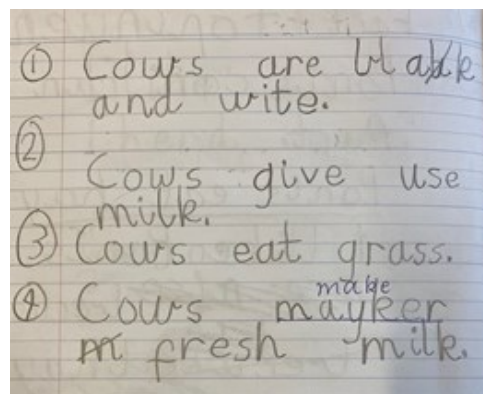 ① Cows are blakke
and wite.
②
Cows give use
milk.
③ Cows eat grass.
make
④ Cows mayker
m fresh milk.